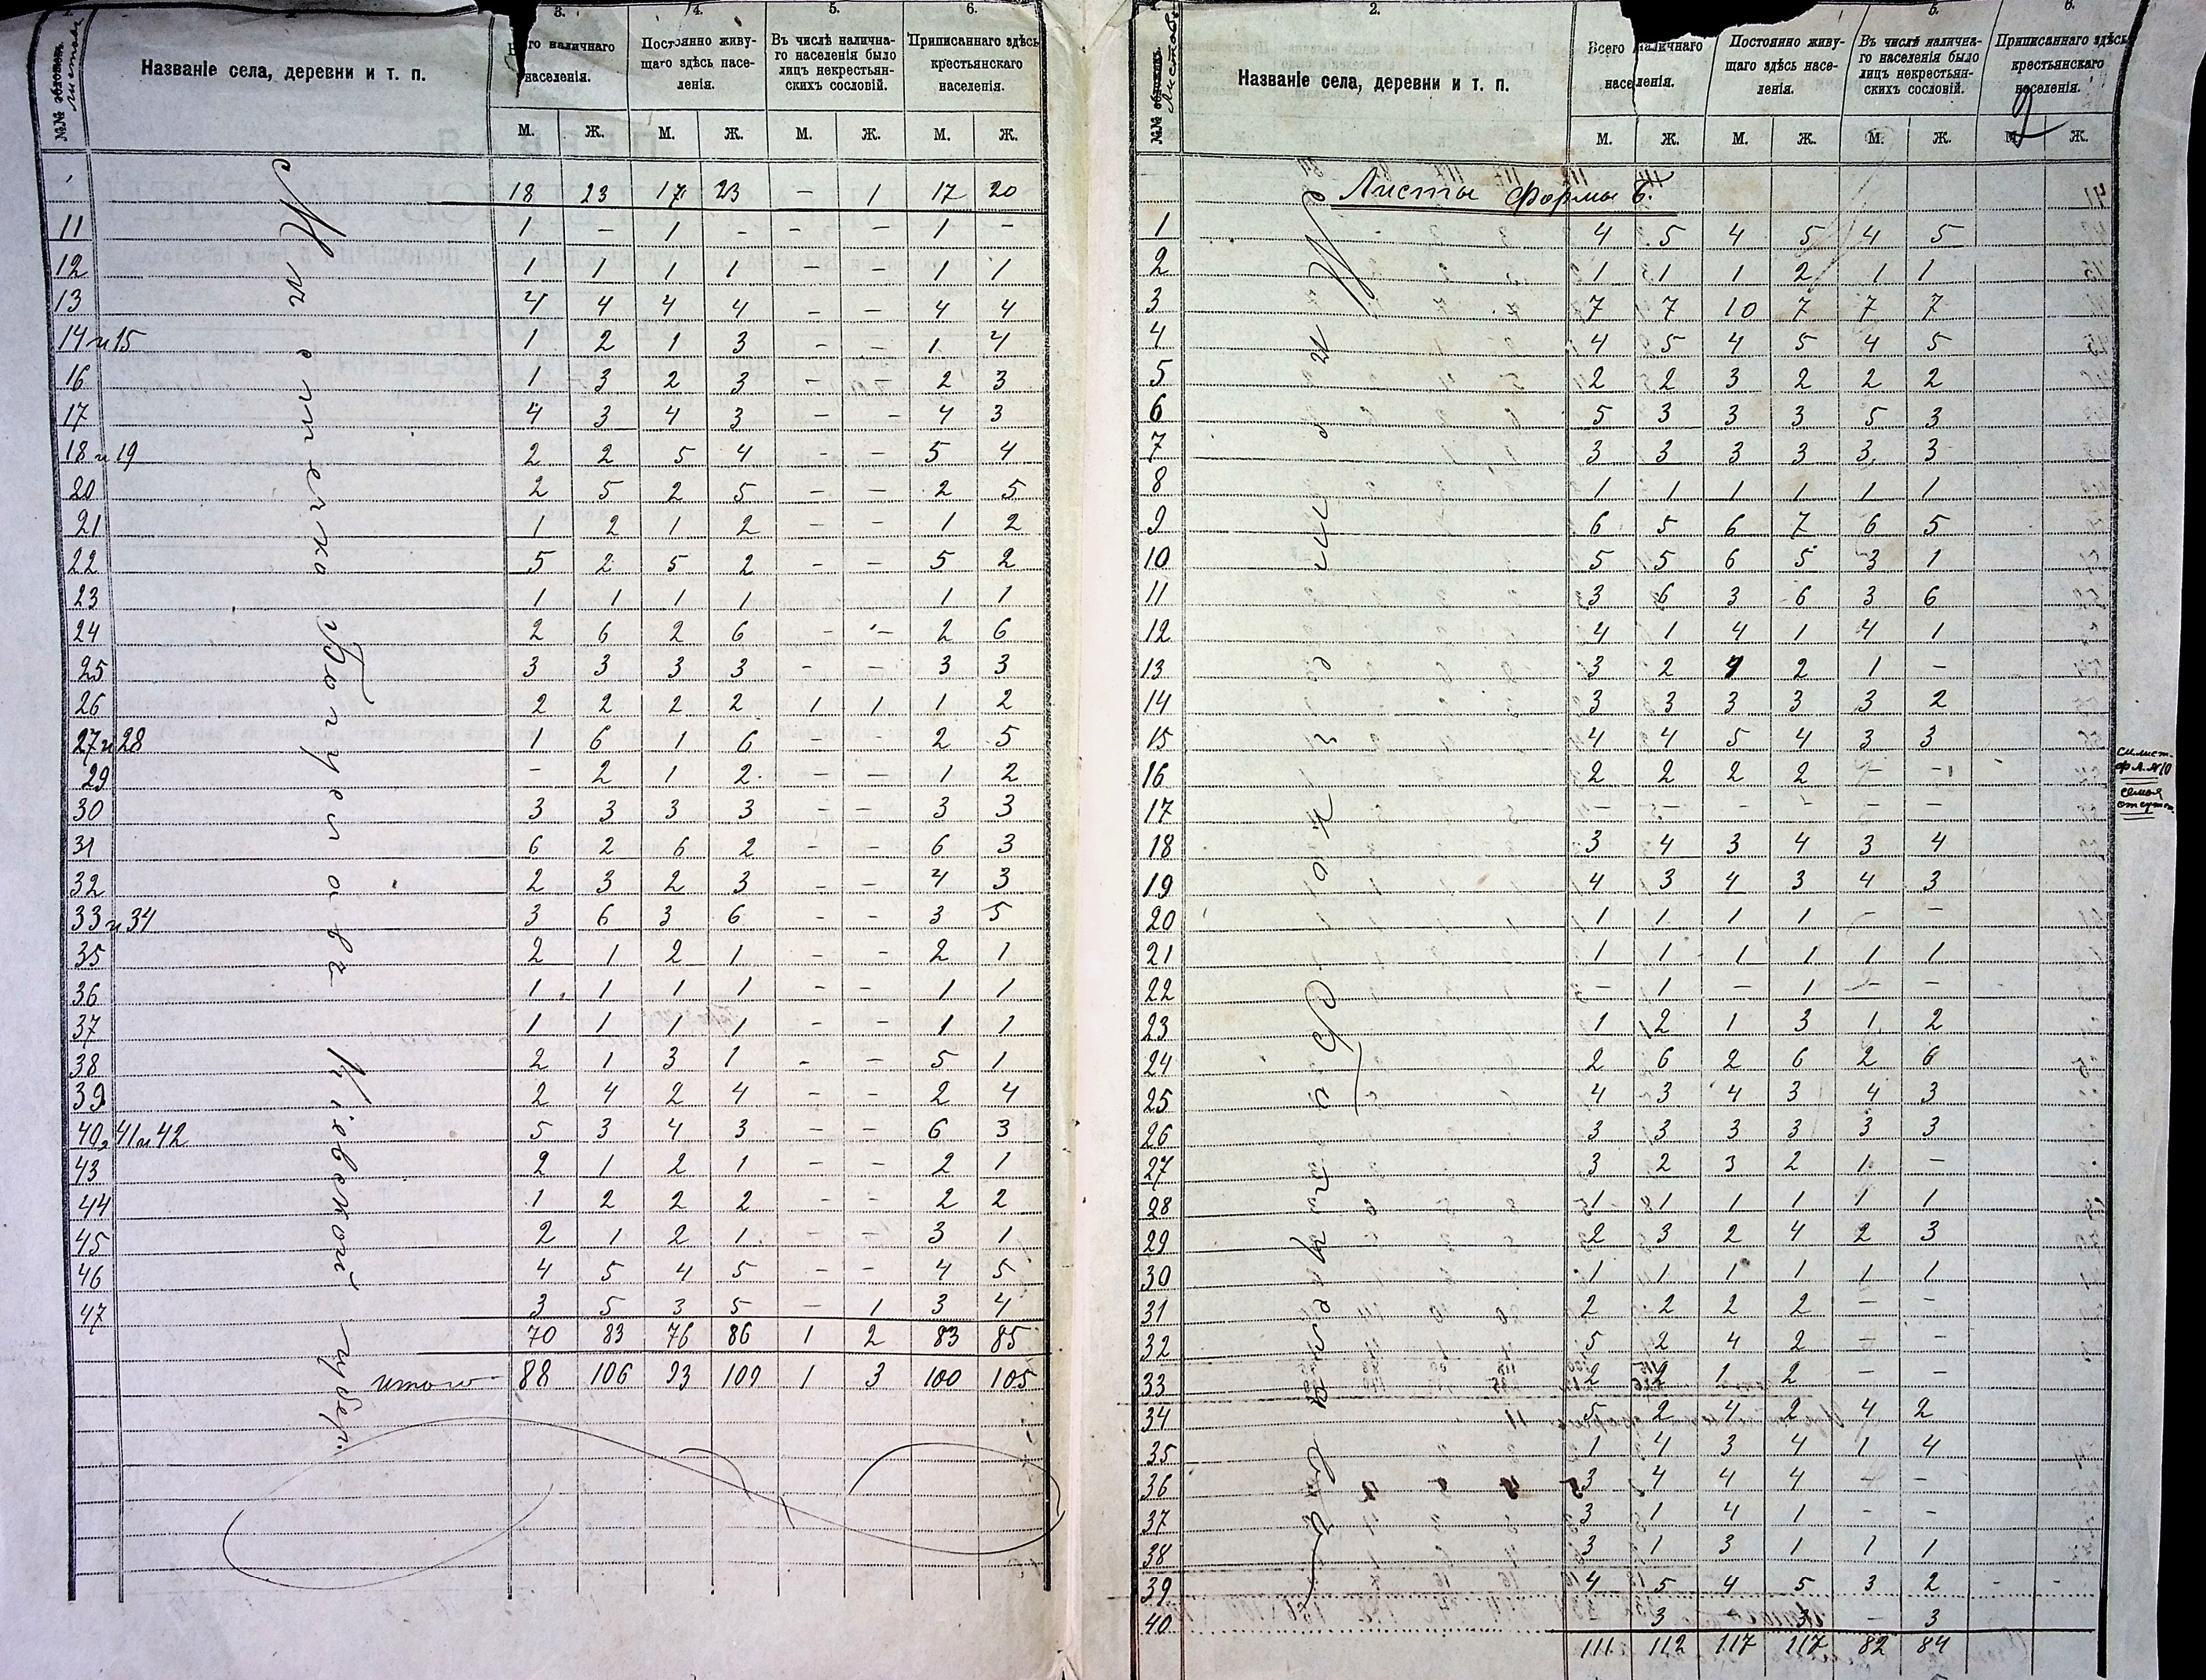 3. 4. 5. 6.
№№ листовъ
Названіе села, деревни и т. п.
наличнаго населенія.
Постоянно живу-
щаго здѣсь насе-
ленія.
Въ числѣ налична-
го населенія было
лицъ некрестьян-
скихъ сословій.
Приписаннаго здѣсь
крестьянскаго
населенія.
М. Ж. М. Ж. М. Ж. М. Ж.
18 23 17 23 – 1 17 20
11 1 – 1 – – – 1 –
12 1 1 1 1 – – 1 1
13 4 4 4 4 – – 4 4
14 и 15 1 2 1 3 – – 1 4
16 1 3 2 3 – – 2 3
17 4 3 4 3 – – 4 3
18 и 19 2 2 5 4 – – 5 4
20 2 5 2 5 – – 2 5
21 1 2 1 2 – – 1 2
22 5 2 5 2 – – 5 2
23 1 1 1 1 1 1
24 2 6 2 6 – – 2 6
25 3 3 3 3 – – 3 3
26 2 2 2 2 1 1 1 2
27 и 28 1 6 1 6 – – 2 5
29 – 2 1 2 – – 1 2
30 3 3 3 3 – – 3 3
31 6 2 6 2 – – 6 3
32 2 3 2 3 – – 4 3
33 и 34 3 6 3 6 – – 3 5
35 2 1 2 1 – – 2 1
36 1 1 1 1 – – 1 1
37 1 1 1 1 – – 1 1
38 2 1 3 1 – – 5 1
39 2 4 2 4 – – 2 4
40, 41 и 42 5 3 4 3 – – 6 3
43 2 1 2 1 – – 2 1
44 1 2 2 2 – – 2 2
45 2 1 2 1 – – 3 1
46 4 5 4 5 – – 4 5
47 3 5 3 5 – 1 3 4
70 83 76 86 1 2 83 85
итого 88 106 93 109 1 3 100 105
Мѣстечко Богуславъ Кіевской губер.
2. 5. 6.
№№ листовъ
Названіе села, деревни и т. п.
Всего наличнаго
населенія.
Постоянно живу-
щаго здѣсь насе-
ленія.
Въ числѣ налична-
го населенія было
лицъ некрестьян-
скихъ сословій.
Приписаннаго здѣсь
крестьянскаго
населенія.
М. Ж. М. Ж. М. Ж. М. Ж.
Листы формы Б.
1 4 5 4 5 4 5
2 1 1 1 2 1 1
3 7 7 10 7 7 7
4 4 5 4 5 4 5
5 2 2 3 2 2 2
6 5 3 3 3 5 3
7 3 3 3 3 3 3
8 1 1 1 1 1 1
9 6 5 6 7 6 5
10 5 5 6 5 3 1
11 3 6 3 6 3 6
12 4 1 4 1 4 1
13 3 2 4 2 1 –
14 3 3 3 3 3 2
15 4 4 5 4 3 3
16 2 2 2 2 – –
17 – – – – – –
18 3 4 3 4 3 4
19 4 3 4 3 4 3
20 1 1 1 1 – –
21 1 1 1 1 1 1
22 – 1 – 1 – –
23 1 2 1 3 1 2
24 2 6 2 6 2 6
25 4 3 4 3 4 3
26 3 3 3 3 3 3
27 3 2 3 2 1 –
28 1 1 1 1 1 1
29 2 3 2 4 2 3
30 1 1 1 1 1 1
31 2 2 2 2 – –
32 5 2 4 2 – –
33 2 2 1 2 – –
34 5 2 4 2 4 2
35 1 4 3 4 1 4
36 3 4 4 4 – –
37 3 1 4 1 – –
38 3 1 3 1 1 1
39 4 5 4 5 3 2 - -
40 3 3 – 3
111 112 117 117 82 84
см. лист.
ф. А. №10
семья
отсутст.